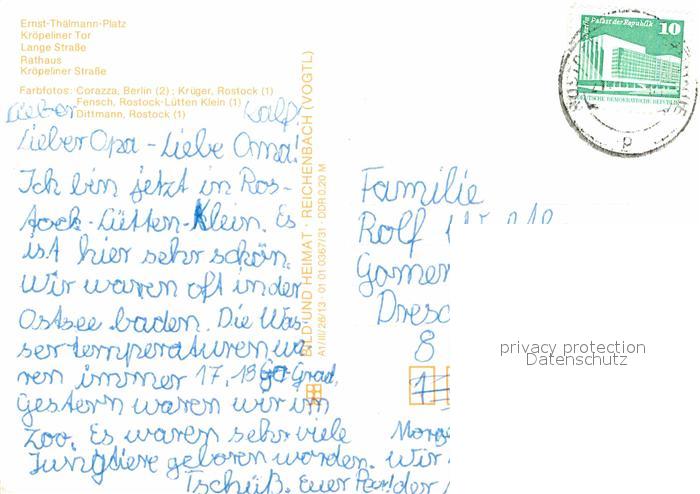 Ernst-Thälmann-Platz
Kröpeliner Tor
Lange Straße
Rathaus
Kröpeliner Straße
Farbfotos: Corazza, Berlin (2); Krüger, Rostock (1)
Fensch, Rostock-Lütten Klein (1)
Dittmann, Rostock (1)
Lieber Ralf!
Lieber Opa - Liebe Oma!
Ich bin jetzt in Ros-
tock-Lütten-Klein. Es
ist hier sehr schön.
Wir waren oft in der
Ostsee baden. Die Was-
sertemperaturen wa-
ren immer 17, 18 Grad.
Gestern waren wir im
Zoo. Es waren sehr viele
Jungtiere geboren worden. Wir
Tschüß. Euer
BILD UND HEIMAT · REICHENBACH (VOGTL)
A1/III/26/13 · 01 01 0367/31 · DDR 0,20 M
Palast der Republik
10
DEUTSCHE DEMOKRATISCHE REPUBLIK
p
Familie
Rolf
Dresd
8
1
privacy protection
Datenschutz